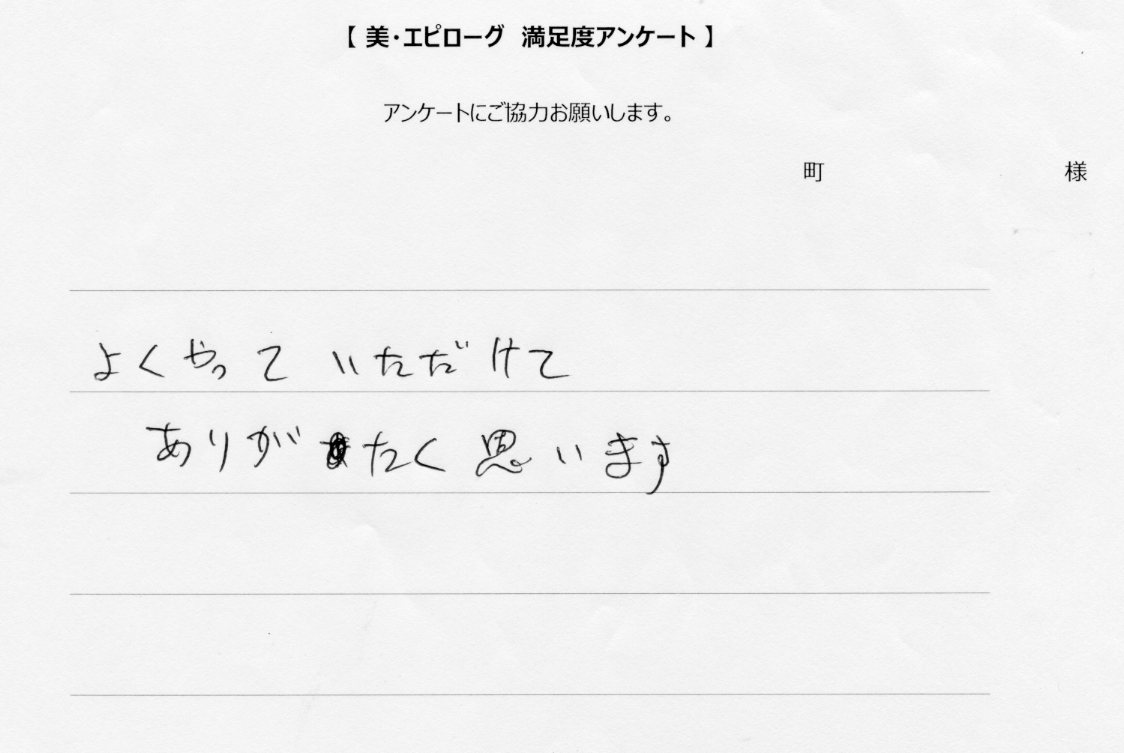 【 美・エピローグ 満足度アンケート 】
アンケートにご協力お願いします。
町 様
よくやって いただけて
ありがたく 思います